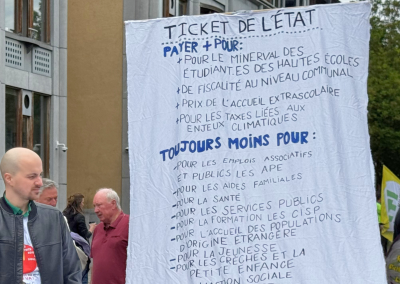 TICKET DE L'ÉTAT
PAYER + POUR:
+ POUR LE MINERVAL DES
ÉTUDIANT.ES DES HAUTES ÉCOLES
+ DE FISCALITÉ AU NIVEAU COMMUNAL
+ PRIX DE L'ACCUEIL EXTRASCOLAIRE
+ POUR LES TAXES LIÉES AUX
ENJEUX CLIMATIQUES
TOUJOURS MOINS POUR:
- POUR LES EMPLOIS ASSOCIATIFS
ET PUBLICS LES APE
- POUR LES AIDES FAMILIALES
- POUR LA SANTÉ
- POUR LES SERVICES PUBLICS
- POUR LA FORMATION LES CISP
- POUR L'ACCUEIL DES POPULATIONS
D'ORIGINE ÉTRANGÈRE
- POUR LA JEUNESSE
- POUR LES CRÈCHES ET LA
PETITE ENFANCE
SOCIALE